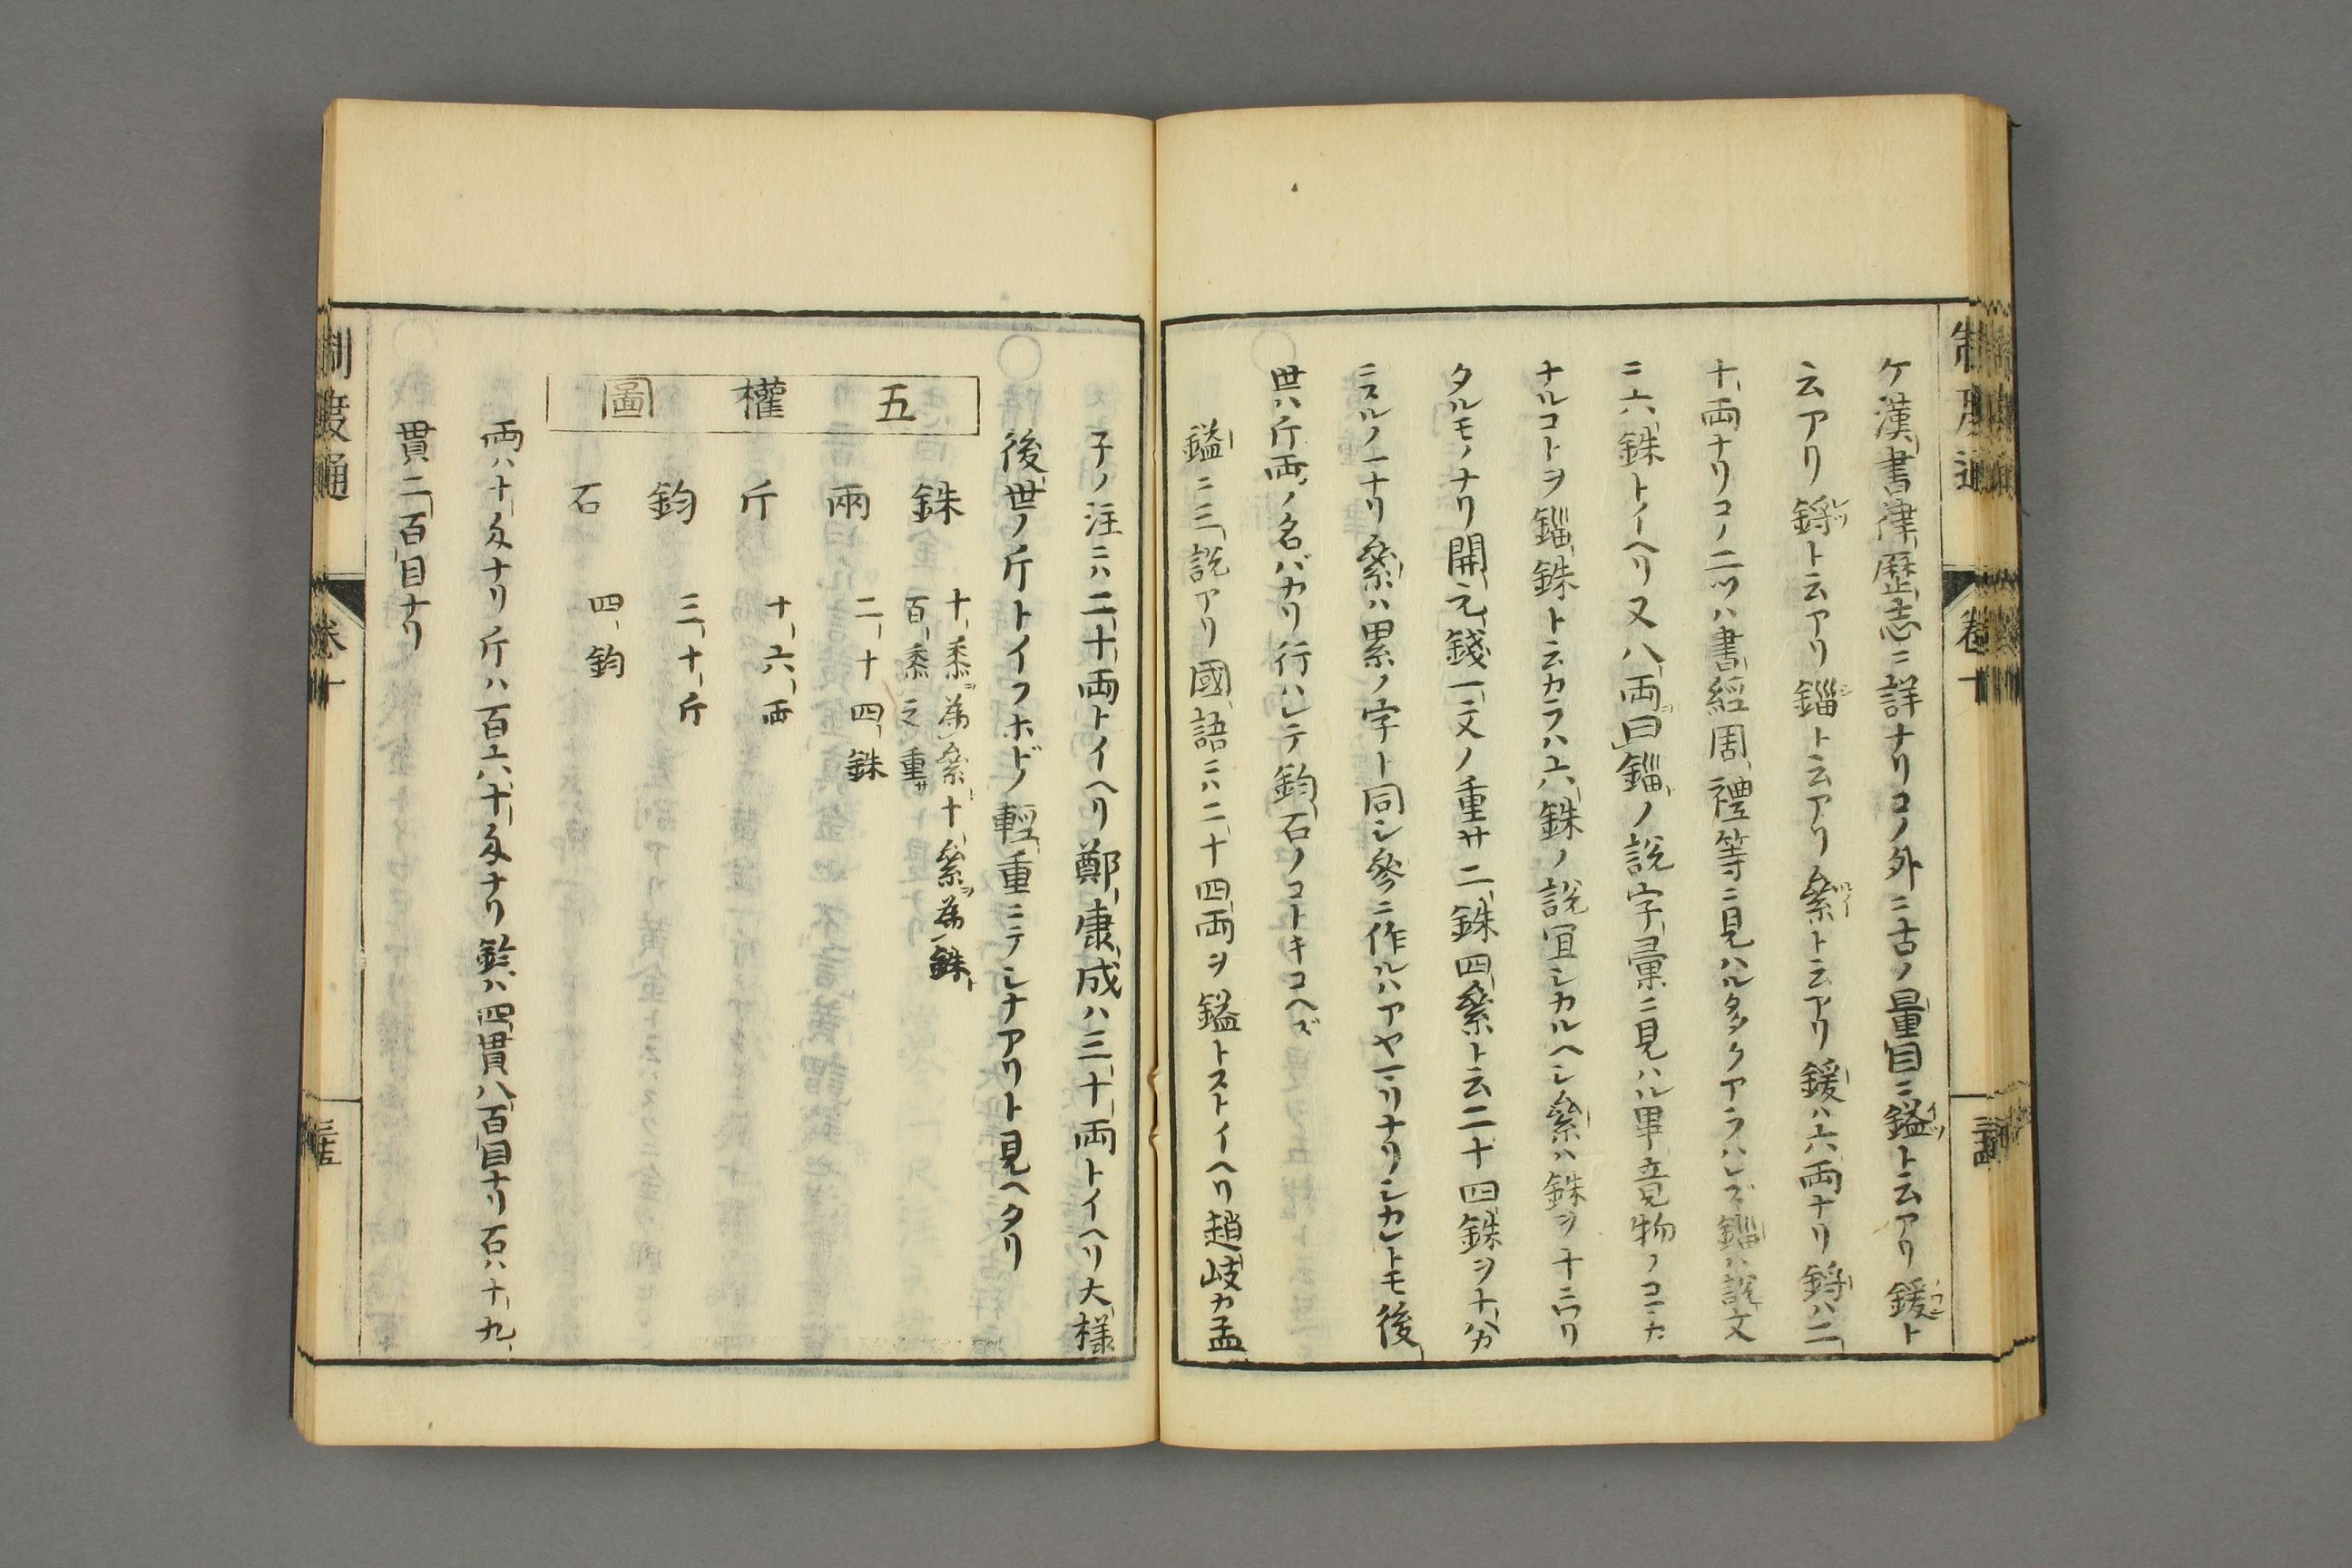 制度通
卷十
三十四
ケ漢書律歴志ニ詳ナリコノ外ニ古ノ量目ニ鎰ト云アリ鍰ト
云アリ鋝ト云アリ錙ト云アリ絫ト云アリ鍰ハ六両ナリ鋝ハ二
十両ナリコノ二ツハ書經周禮等ニ見ハル多クアラハレズ錙ハ説文
ニ六銖トイヘリ又八両曰錙ノ説字彙ニ見ハル畢竟物ノコマカ
ナルコトヲ錙銖ト云カラハ六銖ノ説宜シカルヘシ絫ハ銖ヲ十ニワリ
タルモノナリ開元錢一文ノ重サ二銖四絫ト云二十四銖ヲ十分
ニスルノ一ナリ絫ハ累ノ字ト同シ參ニ作ルハアヤマリナリシカレトモ後
世ハ斤両ノ名バカリ行ハレテ鈞石ノコトキコヘズ
鎰ニ三説アリ國語ニハ二十四両ヲ鎰トストイヘリ趙岐カ孟
子ノ注ニハ二十両トイヘリ鄭康成ハ三十両トイヘリ大様
○後世ノ斤トイフホドノ輕重ニテシナアリト見ヘタリ
五權圖
銖 十黍為絫十絫為銖
百黍之重サ
兩 二十四銖
斤 十六両
鈞 三十斤
石 四鈞
両ハ十匁ナリ斤ハ百六十匁ナリ鈞ハ四貫八百目ナリ石ハ十九
貫二百目ナリ
制度通
卷十
三十五